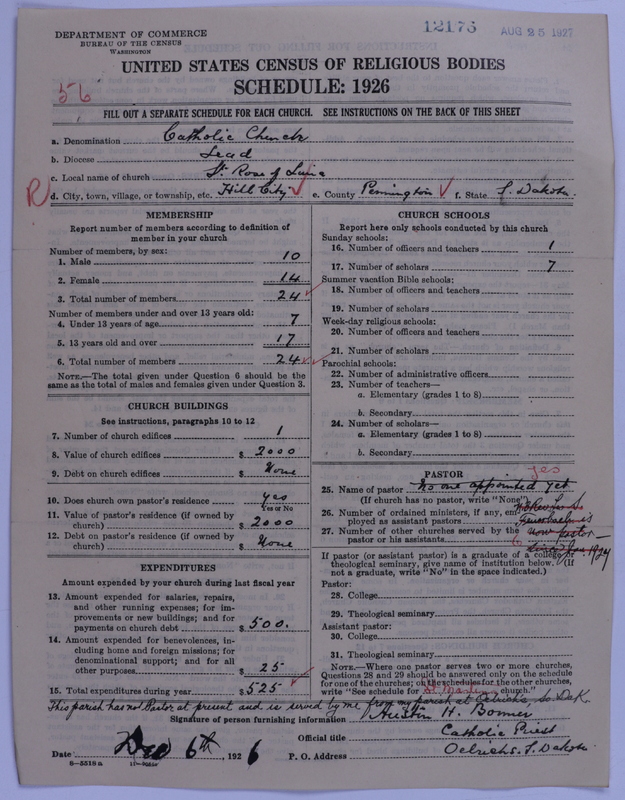 DEPARTMENT OF COMMERCE
BUREAU OF THE CENSUS
WASHINGTON
12176
AUG 25 1927
UNITED STATES CENSUS OF RELIGIOUS BODIES
SCHEDULE: 1926
56
FILL OUT A SEPARATE SCHEDULE FOR EACH CHURCH. SEE INSTRUCTIONS ON THE BACK OF THIS SHEET
a. Denomination Catholic Church
b. Diocese Lead
c. Local name of church St Rose of Lima
R d. City, town, village, or township, etc. Hill City e. County Pennington f. State S. Dakota
MEMBERSHIP
Report number of members according to definition of
member in your church
Number of members, by sex:
1. Male 10
2. Female 14
3. Total number of members 24
Number of members under and over 13 years old:
4. Under 13 years of age 7
5. 13 years old and over 17
6. Total number of members 24
NOTE.—The total given under Question 6 should be
same as the total of males and females given under Question 3.
CHURCH BUILDINGS
See instructions, paragraphs 10 to 12
7. Number of church edifices 1
8. Value of church edifices $ 2000
9. Debt on church edifices $ None
10. Does church own pastor's residence yes
Yes or No
11. Value of pastor's residence (if owned by
church) $ 2000
12. Debt on pastor's residence (if owned by
church) $ None
EXPENDITURES
Amount expended by your church during last fiscal year
13. Amount expended for salaries, repairs,
and other running expenses; for im-
provements or new buildings; and for
payments on church debt $ 500.
14. Amount expended for benevolences, in-
cluding home and foreign missions; for
denominational support; and for all
other purposes $ 25
15. Total expenditures during year $ 525
CHURCH SCHOOLS
Report here only schools conducted by this church
Sunday schools:
16. Number of officers and teachers 1
17. Number of scholars 7
Summer vacation Bible schools:
18. Number of officers and teachers
19. Number of scholars
Week-day religious schools:
20. Number of officers and teachers
21. Number of scholars
Parochial schools:
22. Number of administrative officers
23. Number of teachers—
a. Elementary (grades 1 to 8)
b. Secondary
24. Number of scholars—
a. Elementary (grades 1 to 8)
b. Secondary
PASTOR
yes
25. Name of pastor No one appointed yet
(If church has no pastor, write "None")
26. Number of ordained ministers, if any, em-
ployed as assistant pastors
27. Number of other churches served by the
pastor or his assistants
now pastor
since Jan. 1927
If pastor (or assistant pastor) is a graduate of a college or
theological seminary, give name of institution below. (If
not a graduate, write "No" in the space indicated.)
Pastor:
28. College
29. Theological seminary
Assistant pastor:
30. College
31. Theological seminary
NOTE.—Where one pastor serves two or more churches,
Questions 28 and 29 should be answered only on the schedule
for one of the churches; on the schedules for the other churches,
write "See schedule for St Martins church."
This parish has not Pastor at present and is served by me from my parish at Oelrichs, So. Dak.
Signature of person furnishing information Austin H. Bonner
Official title Catholic Priest
Date Dec 6th, 1926 P. O. Address Oelrichs. S. Dakota
8—5518 a